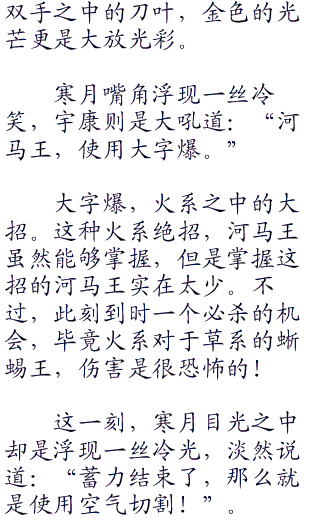 双手之中的刀叶，金色的光
芒更是大放光彩。
寒月嘴角浮现一丝冷
笑，宇康则是大吼道：“河
马王，使用大字爆。”
大字爆，火系之中的大
招。这种火系绝招，河马王
虽然能够掌握，但是掌握这
招的河马王实在太少。不
过，此刻到时一个必杀的机
会，毕竟火系对于草系的蜥
蜴王，伤害是很恐怖的！
这一刻，寒月目光之中
却是浮现一丝冷光，淡然说
道：“蓄力结束了，那么就
是使用空气切割！”。